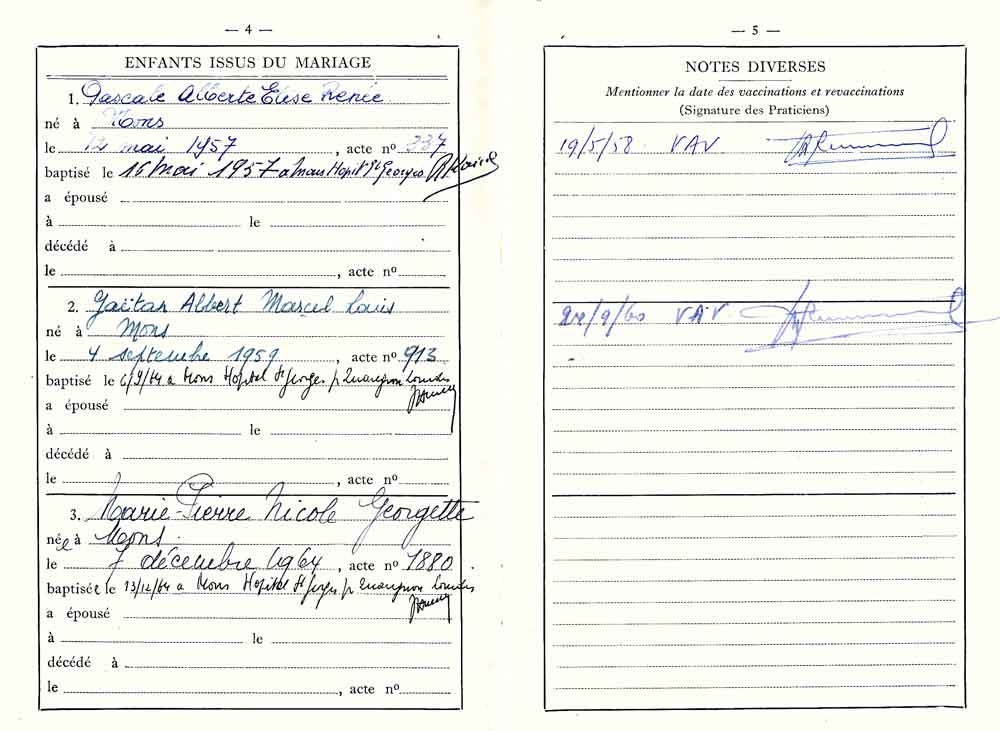 — 4 —
ENFANTS ISSUS DU MARIAGE
1. Pascale Alberte Elise Renée
né à Mons
le 12 mai 1957, acte nº 337
baptisé le 16 mai 1957 a Mons Hopit. St Georges
a épousé
à le
décédé à
le , acte nº
2. Gaëtan Albert Marcel Louis
né à Mons
le 4 septembre 1959, acte nº 913
baptisé le 6/9/64 a Mons Hopital St Georges p Quaregnon Lourdes
a épousé
à le
décédé à
le , acte nº
3. Marie-Pierre Nicole Georgette
née à Mons
le 7 décembre 1964, acte nº 1880
baptisée le 13/12/64 a Mons Hopital St Georges p Quaregnon Lourdes
a épousé
à le
décédé à
le , acte nº
— 5 —
NOTES DIVERSES
Mentionner la date des vaccinations et revaccinations
(Signature des Praticiens)
19/5/58 VAV
/9/60 VAV